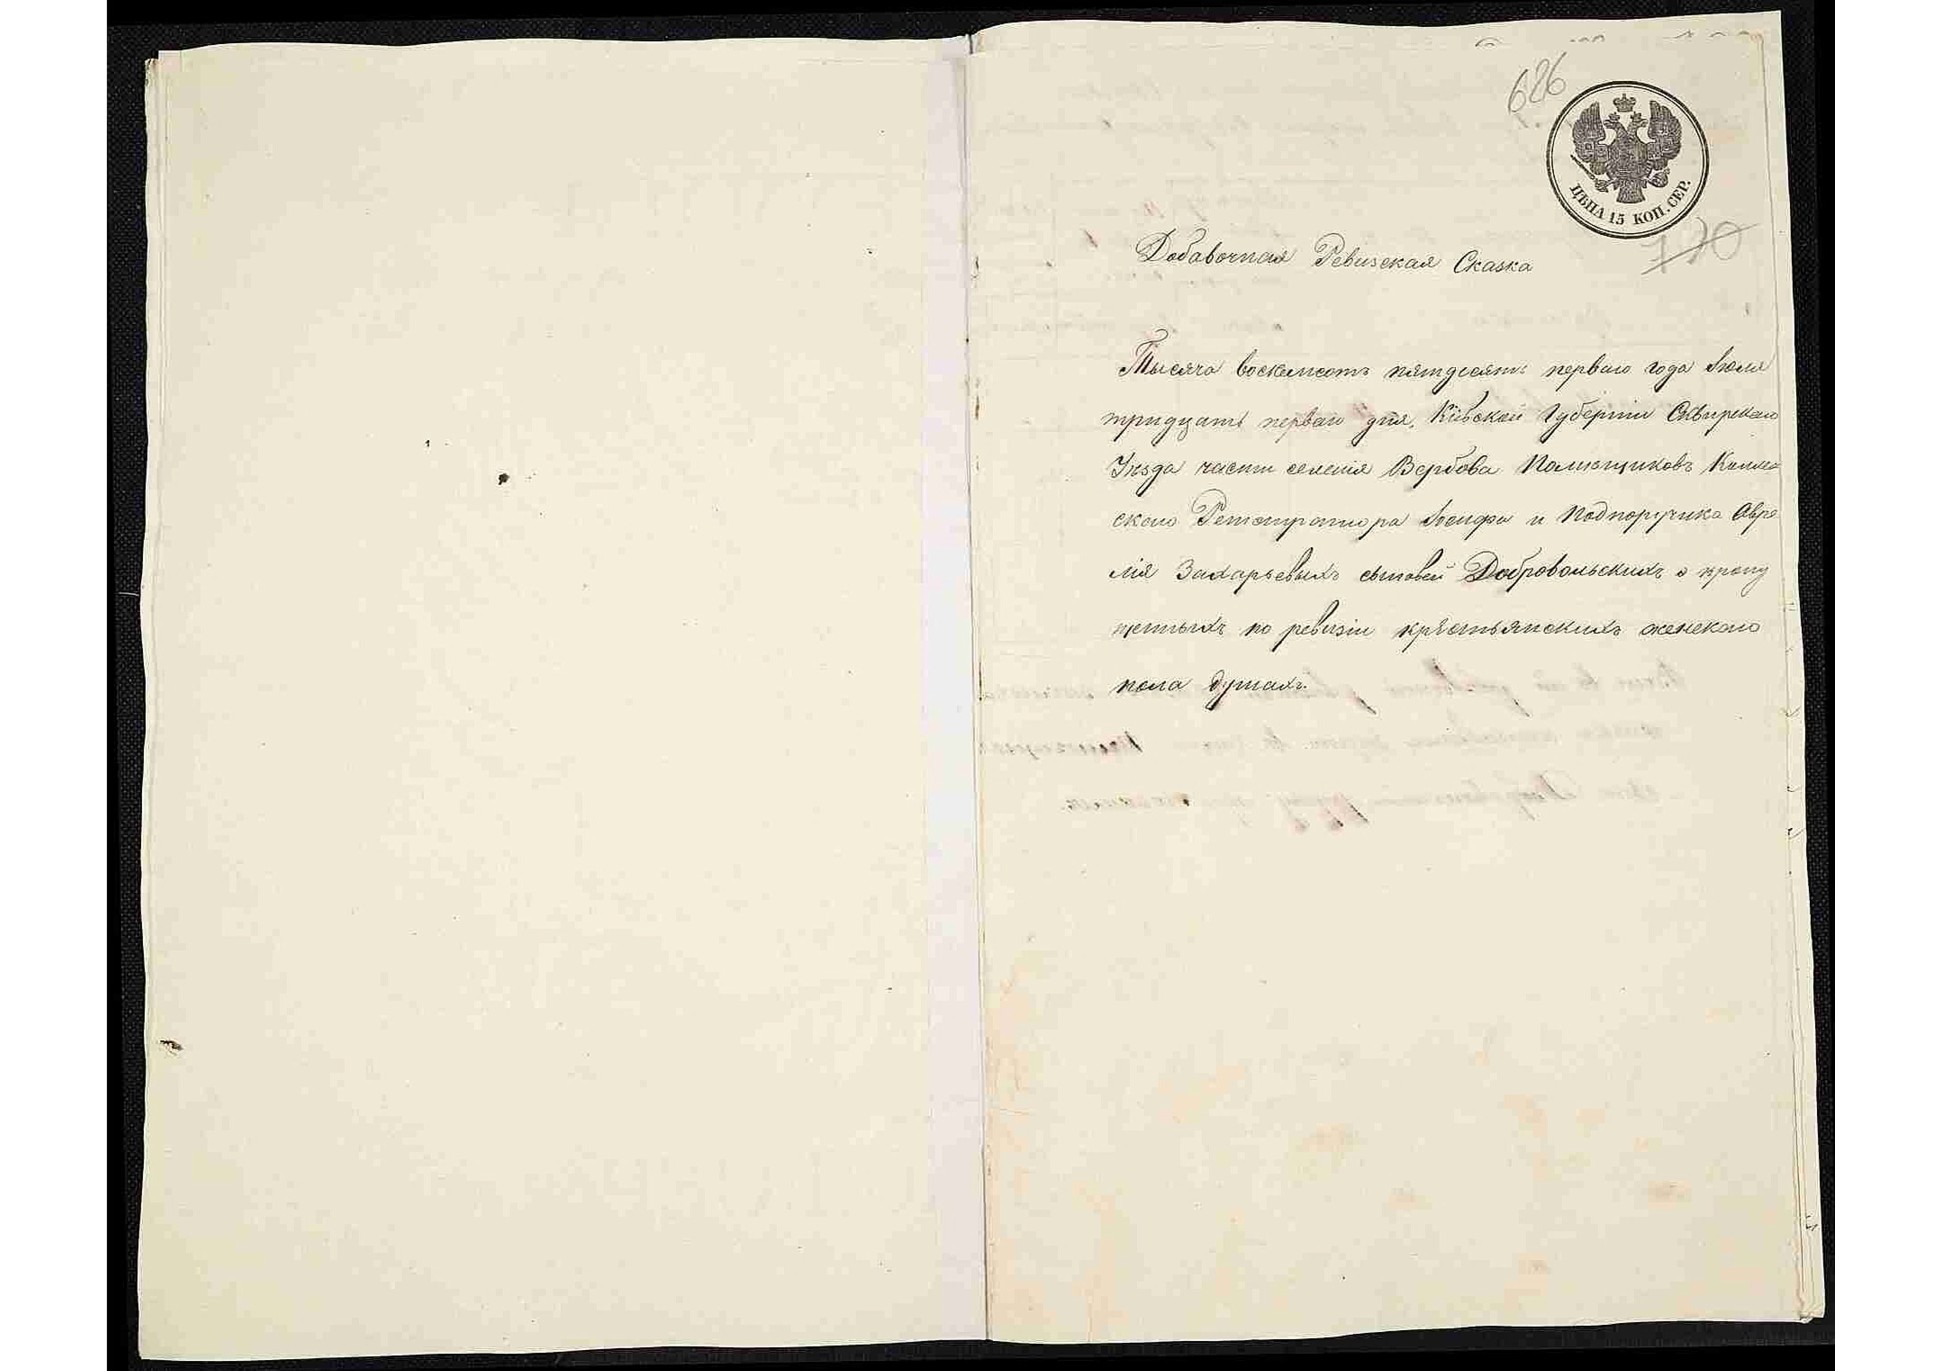 626
ЦѢНА 15 КОП. СЕР.
770
Добавочная Ревизская Сказка
Тысяча восемьсотъ пятдесятъ перваго года Іюля
тридцать перваго дня, Кіевской Губерніи Сквирскаго
Уѣзда части селенія Вербова Помѣщиковъ Коллеж
скаго Регистратора Іосифа и Подпоручика Авре
лія Захарьевыхъ сыновей Добровольскихъ о пропу
щенныхъ по ревизіи крестьянскихъ женскаго
пола душахъ.